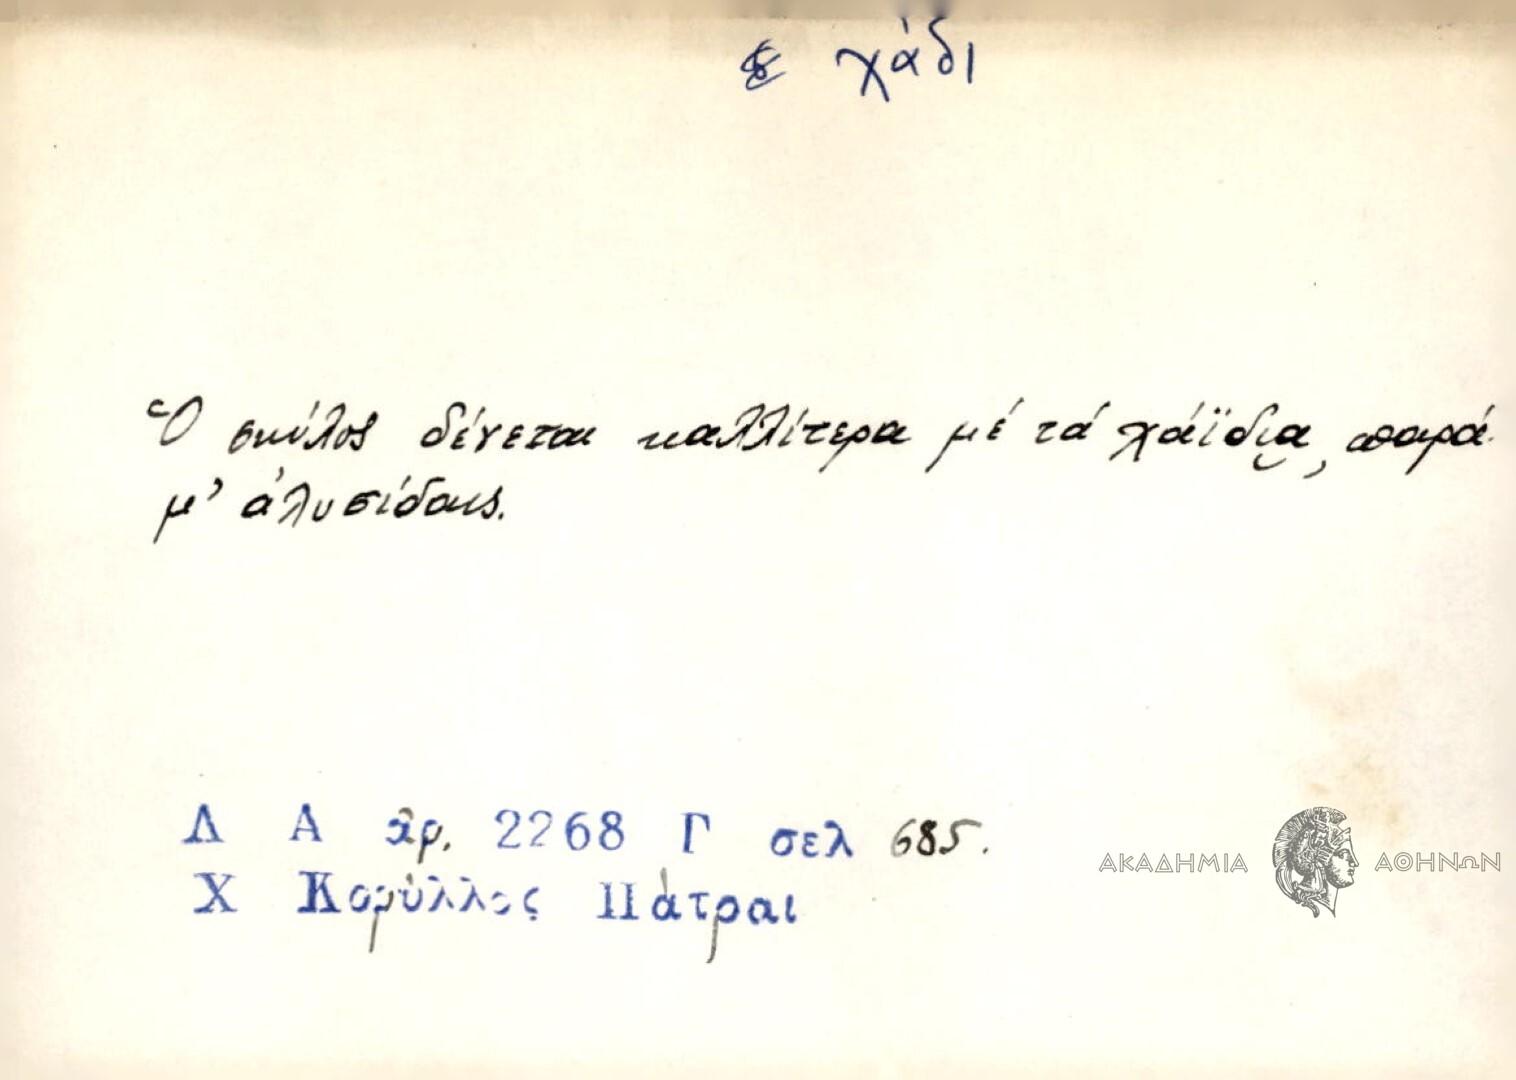 χάδι
Ὁ σκύλος δένεται καλλίτερα μέ τά χάϊδια, παρά
μ' ἁλυσίδαις.
Λ Α ἀρ. 2268 Γ σελ 685.
ΑΚΑΔΗΜΙΑ ΑΘΗΝΩΝ
Χ Κορύλλος Πάτραι